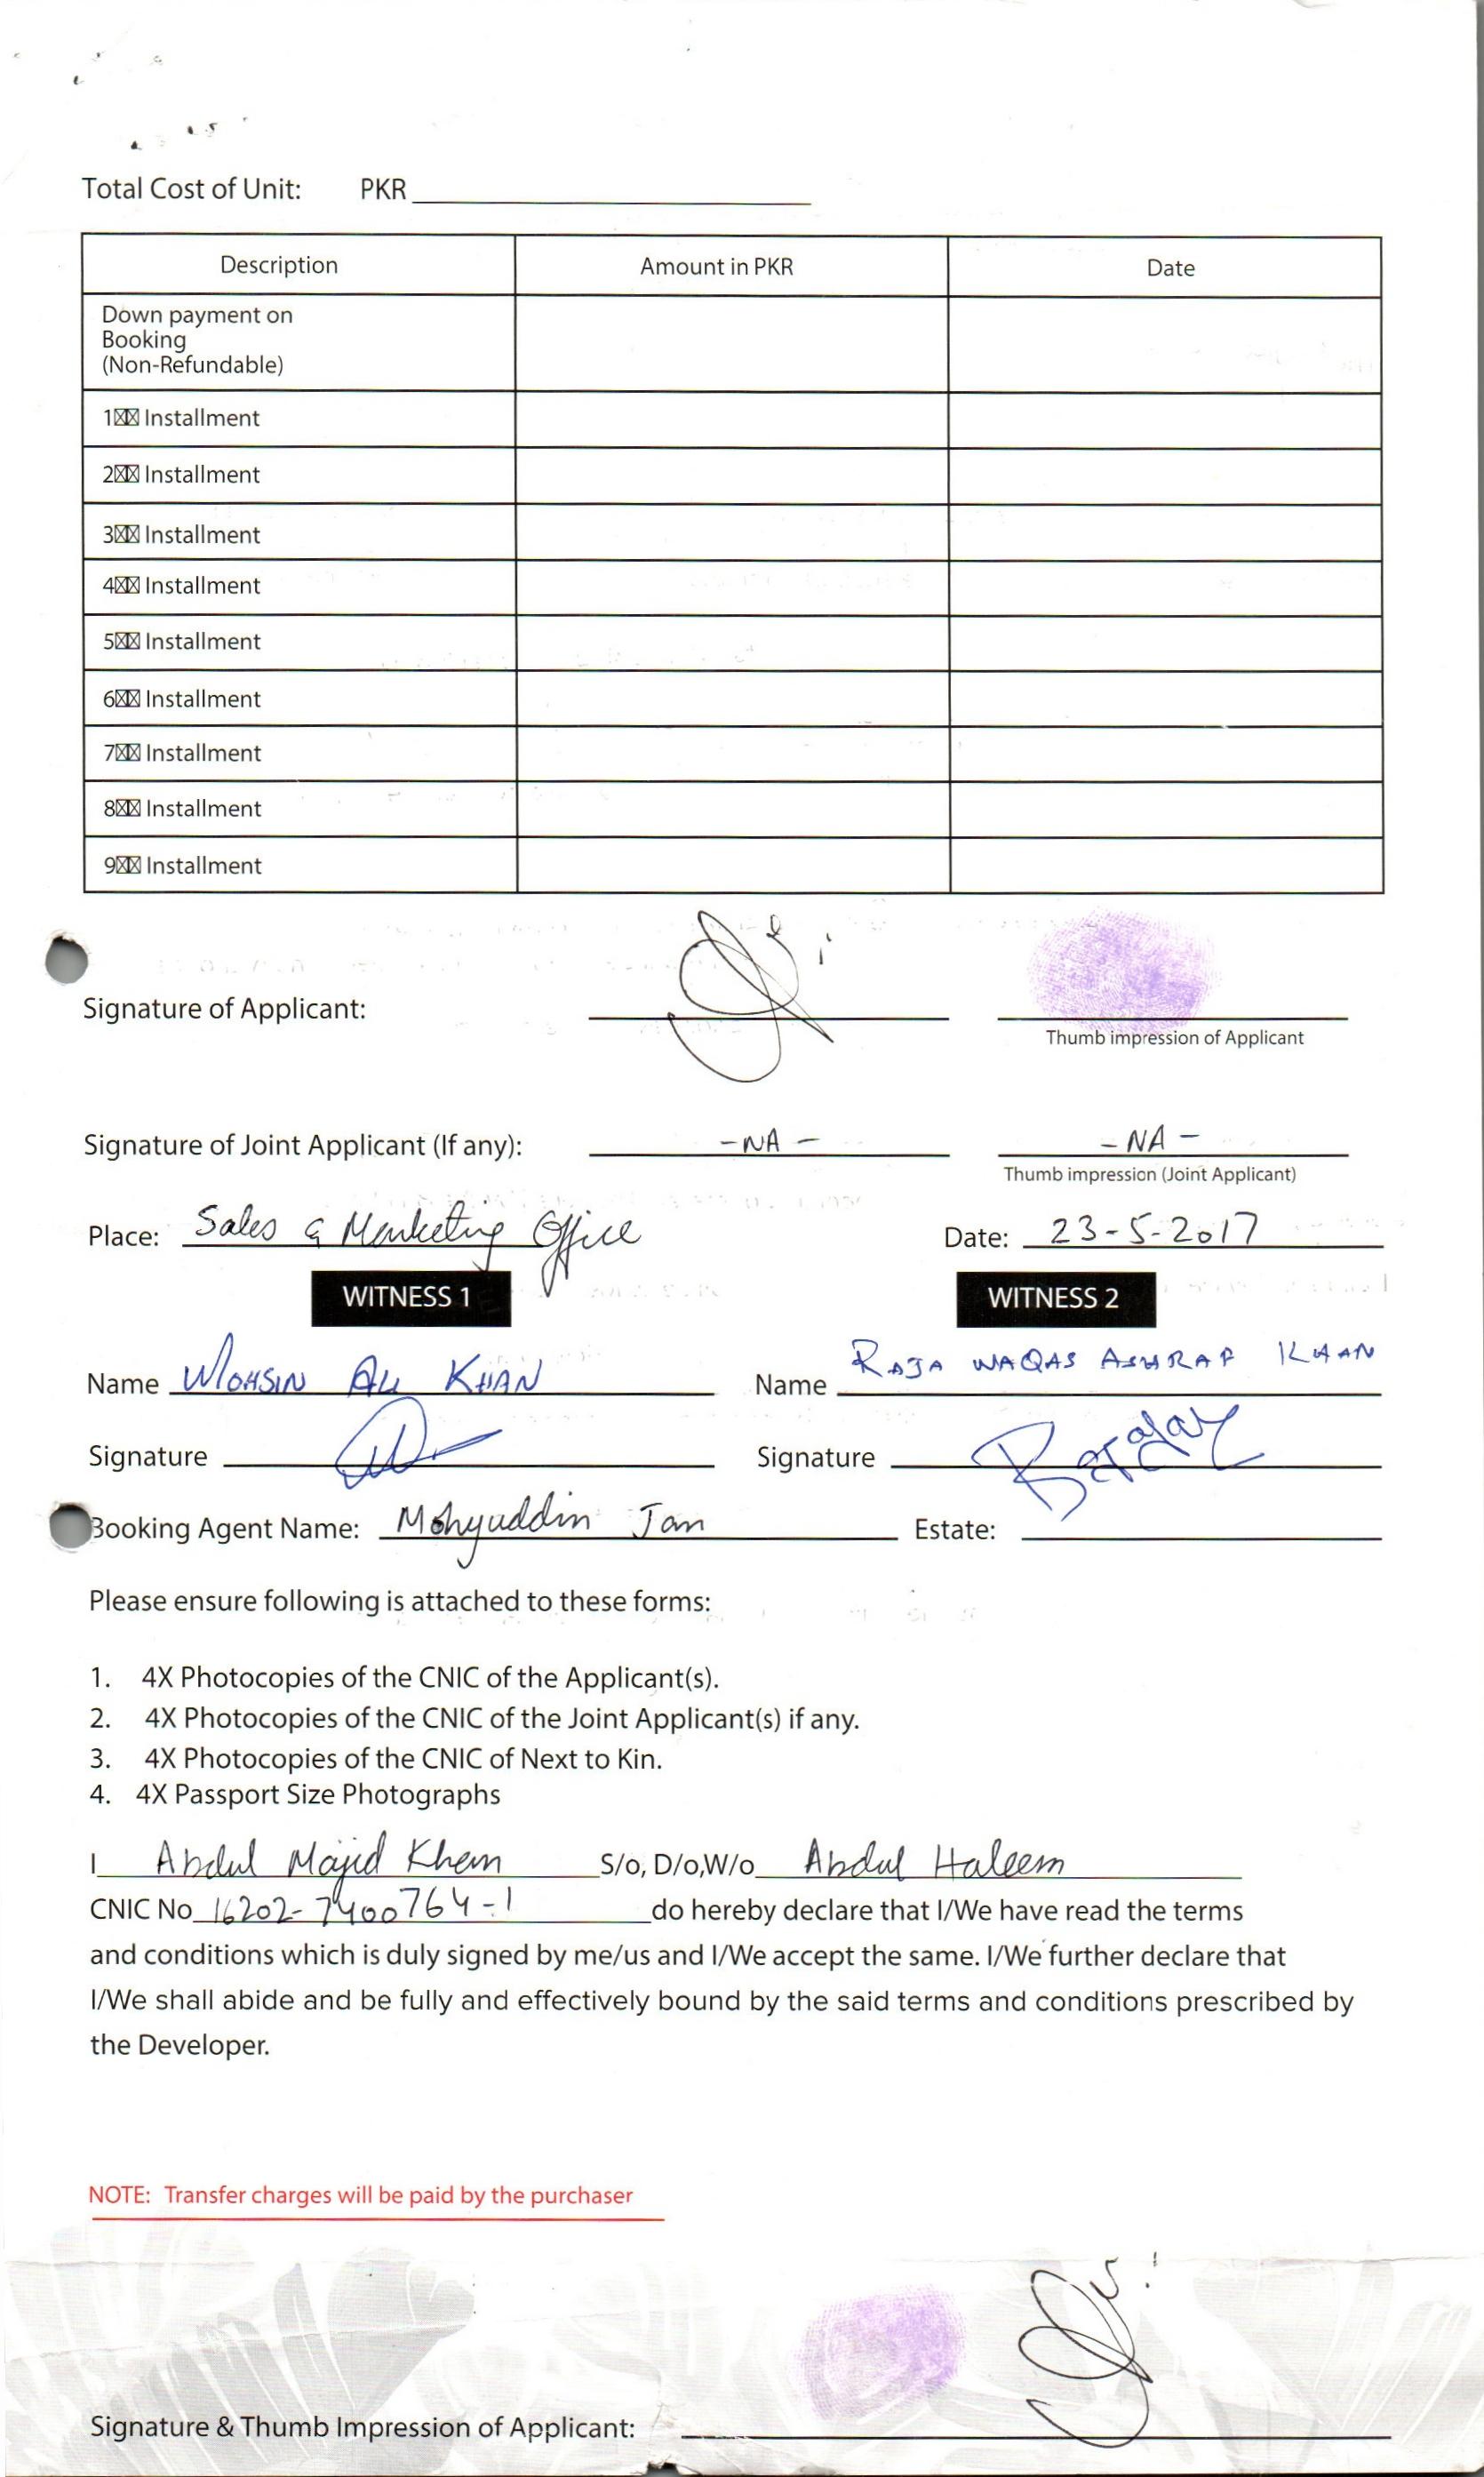 Total Cost of Unit: PKR
Description Amount in PKR Date
Down payment on
Booking
(Non-Refundable)
1☒☒ Installment
2☒☒ Installment
3☒☒ Installment
4☒☒ Installment
5☒☒ Installment
6☒☒ Installment
7☒☒ Installment
8☒☒ Installment
9☒☒ Installment
Signature of Applicant:
Thumb impression of Applicant
Signature of Joint Applicant (If any): -NA- -NA-
Thumb impression (Joint Applicant)
Place: Sales & Marketing Office Date: 23-5-2017
WITNESS 1 WITNESS 2
Name MOHSIN ALI KHAN Name RAJA WAQAS ASHRAF KHAN
Signature Signature
Booking Agent Name: Mohyuddin Jan Estate:
Please ensure following is attached to these forms:
1. 4X Photocopies of the CNIC of the Applicant(s).
2. 4X Photocopies of the CNIC of the Joint Applicant(s) if any.
3. 4X Photocopies of the CNIC of Next to Kin.
4. 4X Passport Size Photographs
I Abdul Majid Khan S/o, D/o,W/o Abdul Haleem
CNIC No 16202-7400764-1 do hereby declare that I/We have read the terms
and conditions which is duly signed by me/us and I/We accept the same. I/We further declare that
I/We shall abide and be fully and effectively bound by the said terms and conditions prescribed by
the Developer.
NOTE: Transfer charges will be paid by the purchaser
Signature & Thumb Impression of Applicant: